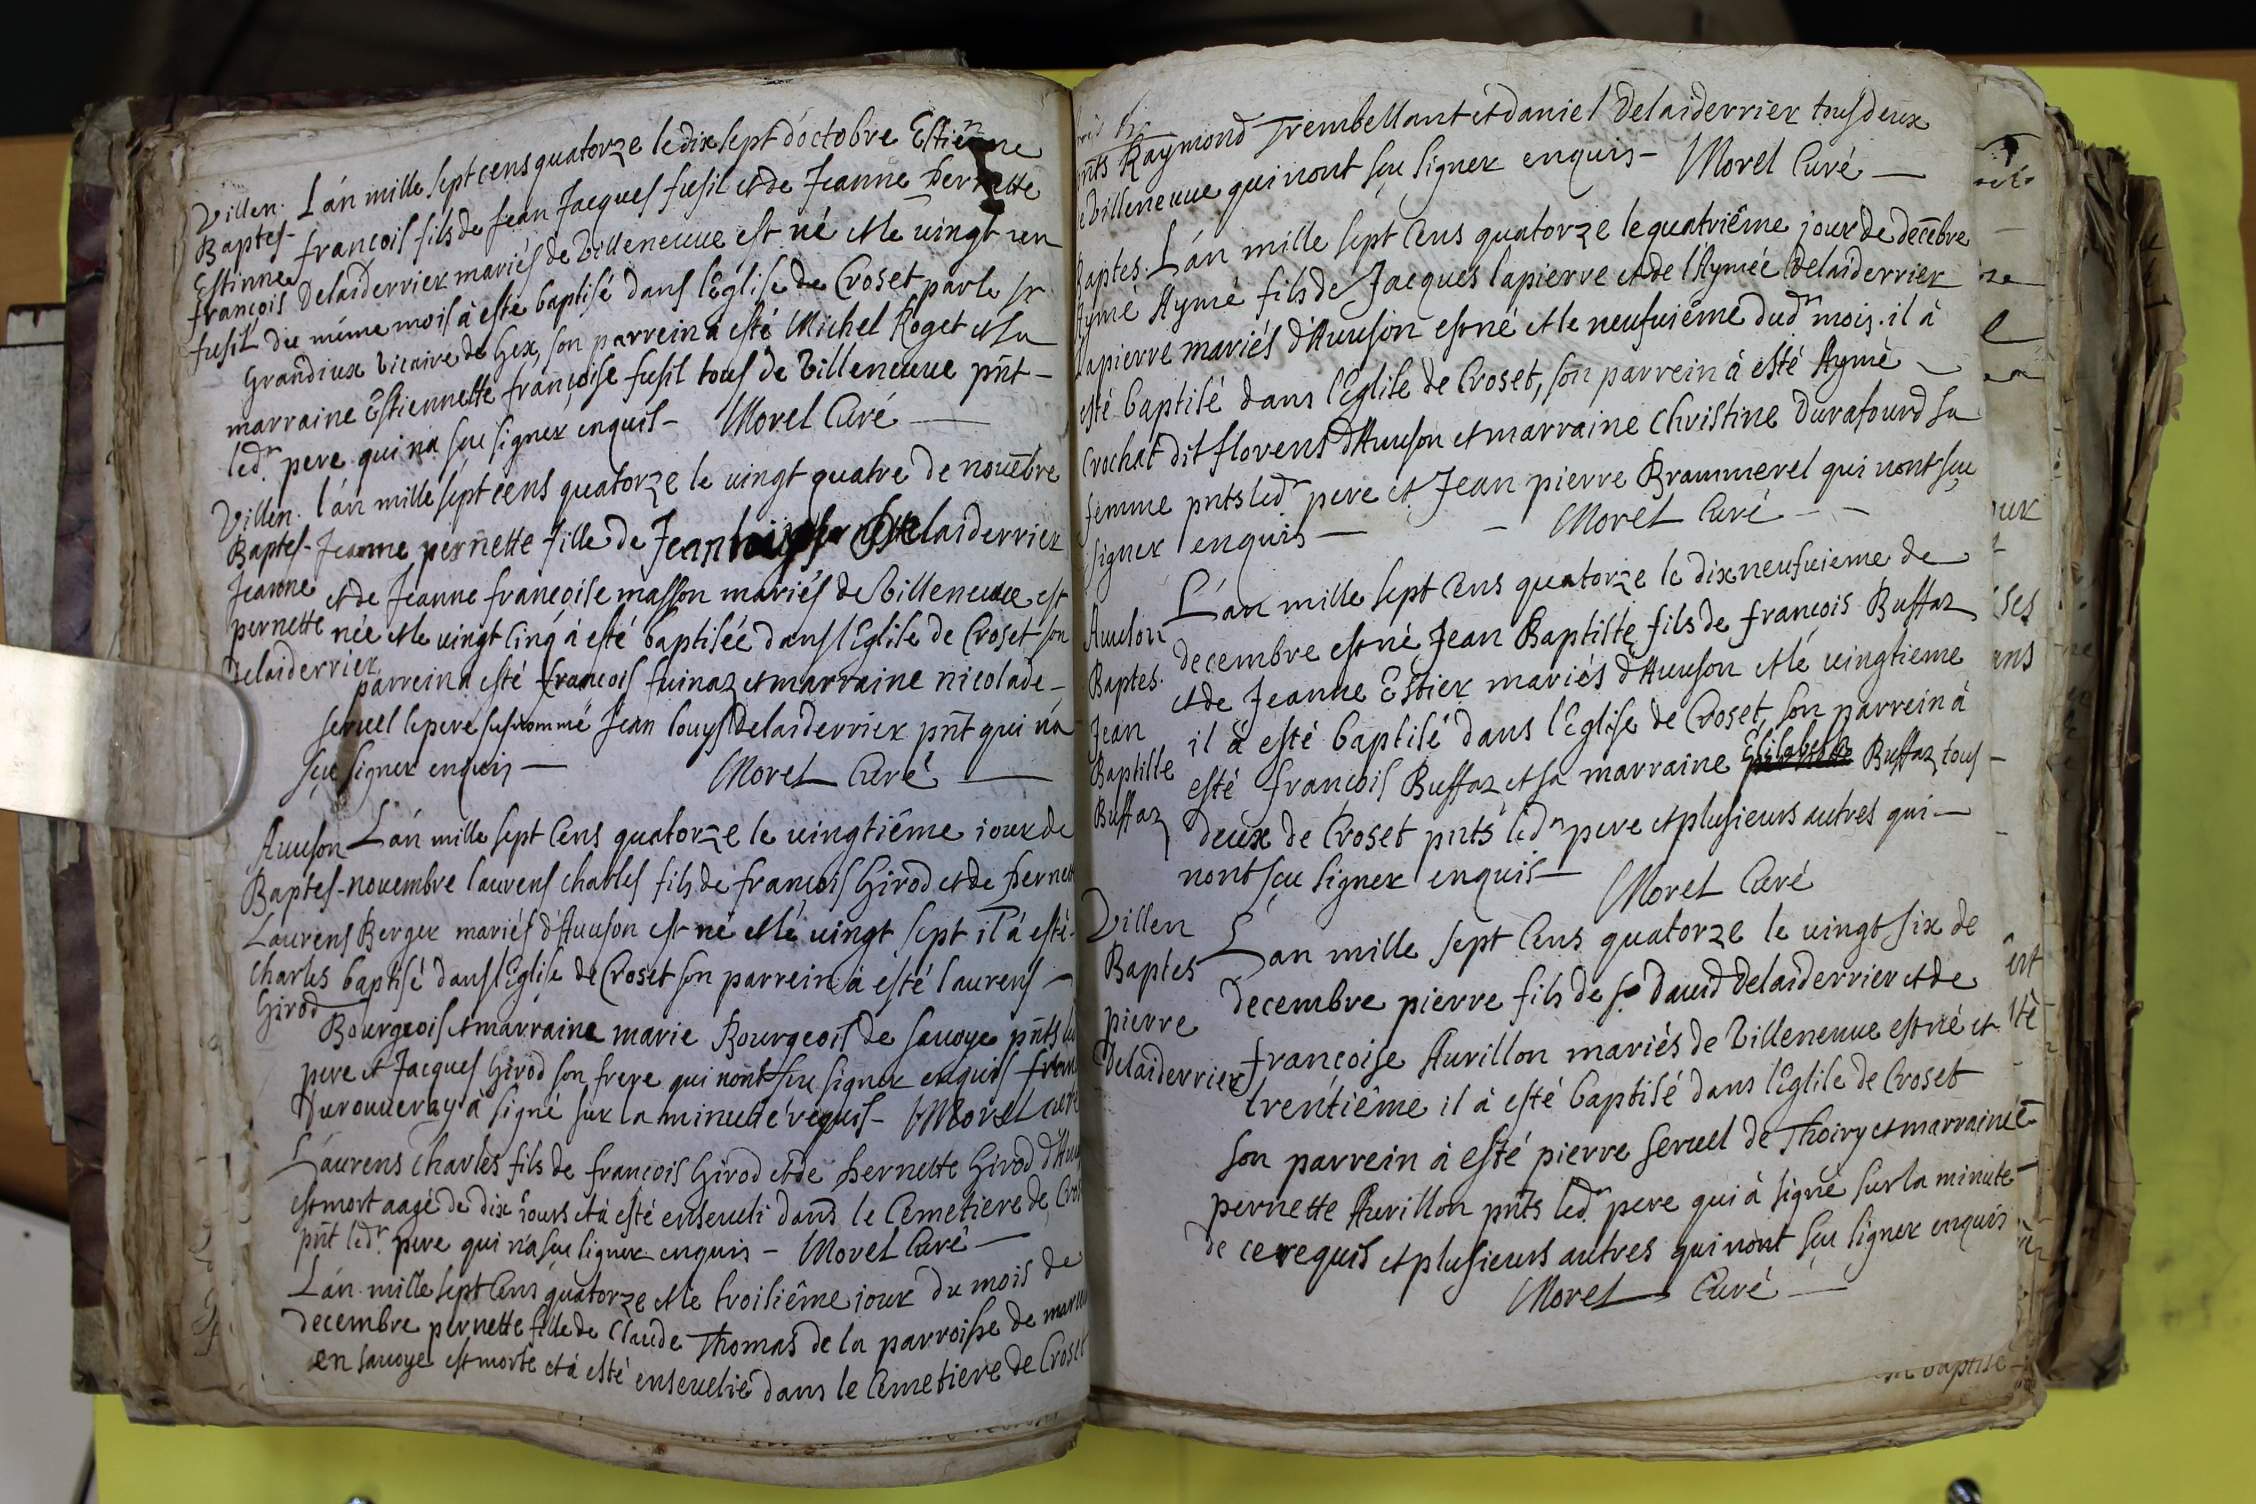 Villen. L'án mille sept cens quatorze le dix sept d'octobre Estienne
Baptes- francois fils de Jean Jacques fusil et de Jeanne Pernette
Estinne
françois Delaiderrier mariés de Villeneuue est né et le uingt un
fusil du méme mois à esté baptisé dans l'Eglise de Croset par le sr
Grandiux Vicaire de Gex, son parrein a esté Michel Roget et sa
marraine Estiennette françoise fusil tous de Villeneuue pñt-
led.r pere qui n'a sçu signer enquis- Morel Curé
Villen. l'án mille sept cens quatorze le uingt quatre de nouẽbre
Baptes- Jeanne pernette fille de Jean louys Delaiderrier
Jeanne et de Jeanne françoise masson mariés de Villeneuue est
pernette née et le uingt Cinq à esté baptisée dans l'Eglise de Croset son
Delaiderrier
parrein a esté françois fuinaz et marraine nicolade-
seruel le pere susnommé Jean louys delaiderrier pñt qui n'a
sçu signer enquis- Morel Curé
Auuson L'án mille sept Cens quatorze le uingtiême iour de
Baptes- nouembre laurens charles fils de françois Girod et de Pernette
Laurens Berger mariés d'Auuson est né et le uingt sept il à esté-
Charles baptisé dans l'Eglise de Croset son parrein à esté laurens-
Girod
Bourgeois et marraine marie Bourgeois de sauoye pñts
pere et Jacques Girod son frere qui n'ont sçu signer enquis
Durouueray à signé sur la minutte requis- Morel curé
Laurens Charles fils de françois Girod et de Pernette Girod
est mort aagé de dix iours et à esté enseueli dans le Cemetiere de
pñt led.r pere qui n'a sçu signer enquis- Morel Curé-
L'án mille sept Cens quatorze et le troisiême iour du mois de
decembre pernette fille de Claude Thomas de la parroisse de
en sauoye est morte et à esté enseuelie dans le Cemetiere de Croset
Raymond Trembellant et daniel Delaiderrier tous deux
Villeneuue qui n'ont sçu signer enquis- Morel Curé-
Baptes. L'án mille sept Cens quatorze le quatriême iour de decẽbre
Aymé Aymé fils de Jacques lapierre et de l'Aymée Delaiderrier
Lapierre mariés d'Auuson est né et le neufuiême dud.r mois. il à
esté baptisé dans l'Eglise de Croset, son parrein à esté Aymé
Crochat dit florens d'Auuson et marraine Christine Durafourd sa
femme pnts led.r pere et Jean pierre Brammerel qui n'ont sçu
signer enquis- Morel Curé-
L'án mille sept Cens quatorze le dix neufuieme de
Auuson decembre est né Jean Baptiste fils de francois Buffaz
Baptes. et de Jeanne Estier mariés d'Auuson et le uingtieme
Jean il à esté baptisé dans l'Eglise de Croset, son parrein à
Baptiste esté francois Buffaz et sa marraine Elisabeth Buffaz tous-
Buffaz deux de Croset pnts led.r pere et plusieurs autres qui-
n'ont sçu signer enquis- Morel Curé
Villen L'an mille sept Cens quatorze le uingt six de
Baptes decembre pierre fils de sr Dauid Delaiderrier et de
pierre françoise Aurillon mariés de Villeneuue est né et
Delaiderrier trentiême il à esté baptisé dans l'Eglise de Croset
son parrein à esté pierre seruel de Thoiry et marraine
pernette Aurillon pñts led.r pere qui à signé sur la minute-
de ce requis et plusieurs autres qui n'ont sçu signer enquis
Morel Curé-